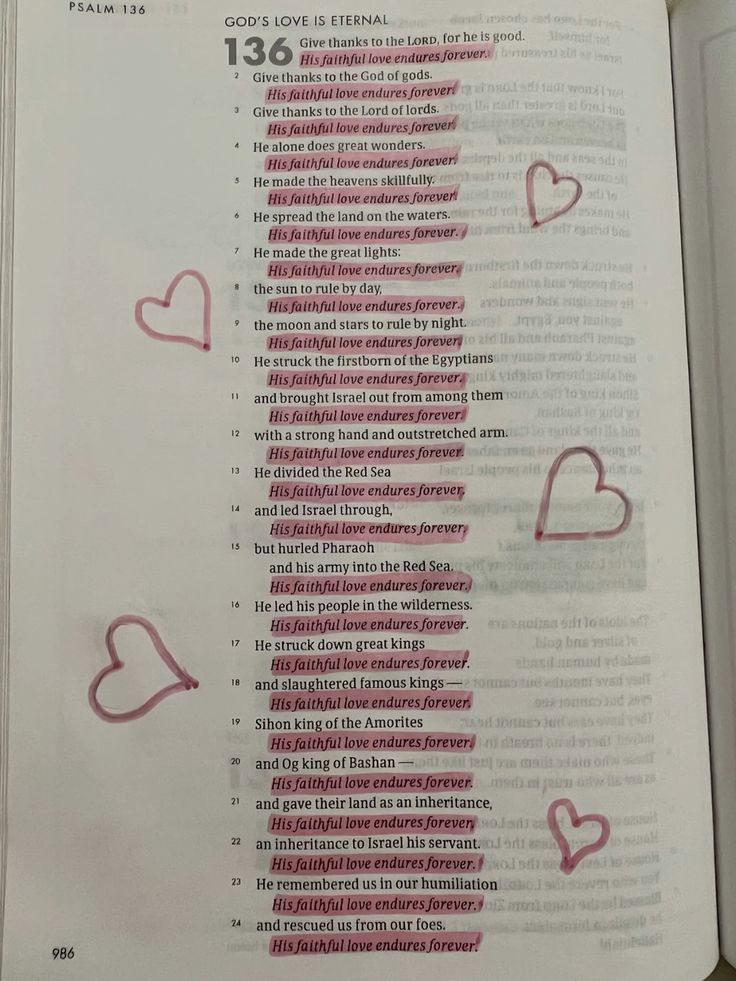 PSALM 136
GOD'S LOVE IS ETERNAL
136 Give thanks to the LORD, for he is good.
His faithful love endures forever.
2 Give thanks to the God of gods.
His faithful love endures forever.
3 Give thanks to the Lord of lords.
His faithful love endures forever.
4 He alone does great wonders.
His faithful love endures forever.
5 He made the heavens skillfully.
His faithful love endures forever.
6 He spread the land on the waters.
His faithful love endures forever.
7 He made the great lights:
His faithful love endures forever.
8 the sun to rule by day,
His faithful love endures forever.
9 the moon and stars to rule by night.
His faithful love endures forever.
10 He struck the firstborn of the Egyptians
His faithful love endures forever.
11 and brought Israel out from among them
His faithful love endures forever.
12 with a strong hand and outstretched arm.
His faithful love endures forever.
13 He divided the Red Sea
His faithful love endures forever.
14 and led Israel through,
His faithful love endures forever.
15 but hurled Pharaoh
and his army into the Red Sea.
His faithful love endures forever.
16 He led his people in the wilderness.
His faithful love endures forever.
17 He struck down great kings
His faithful love endures forever.
18 and slaughtered famous kings —
His faithful love endures forever.
19 Sihon king of the Amorites
His faithful love endures forever.
20 and Og king of Bashan —
His faithful love endures forever.
21 and gave their land as an inheritance,
His faithful love endures forever.
22 an inheritance to Israel his servant.
His faithful love endures forever.
23 He remembered us in our humiliation
His faithful love endures forever.
24 and rescued us from our foes.
His faithful love endures forever.
986